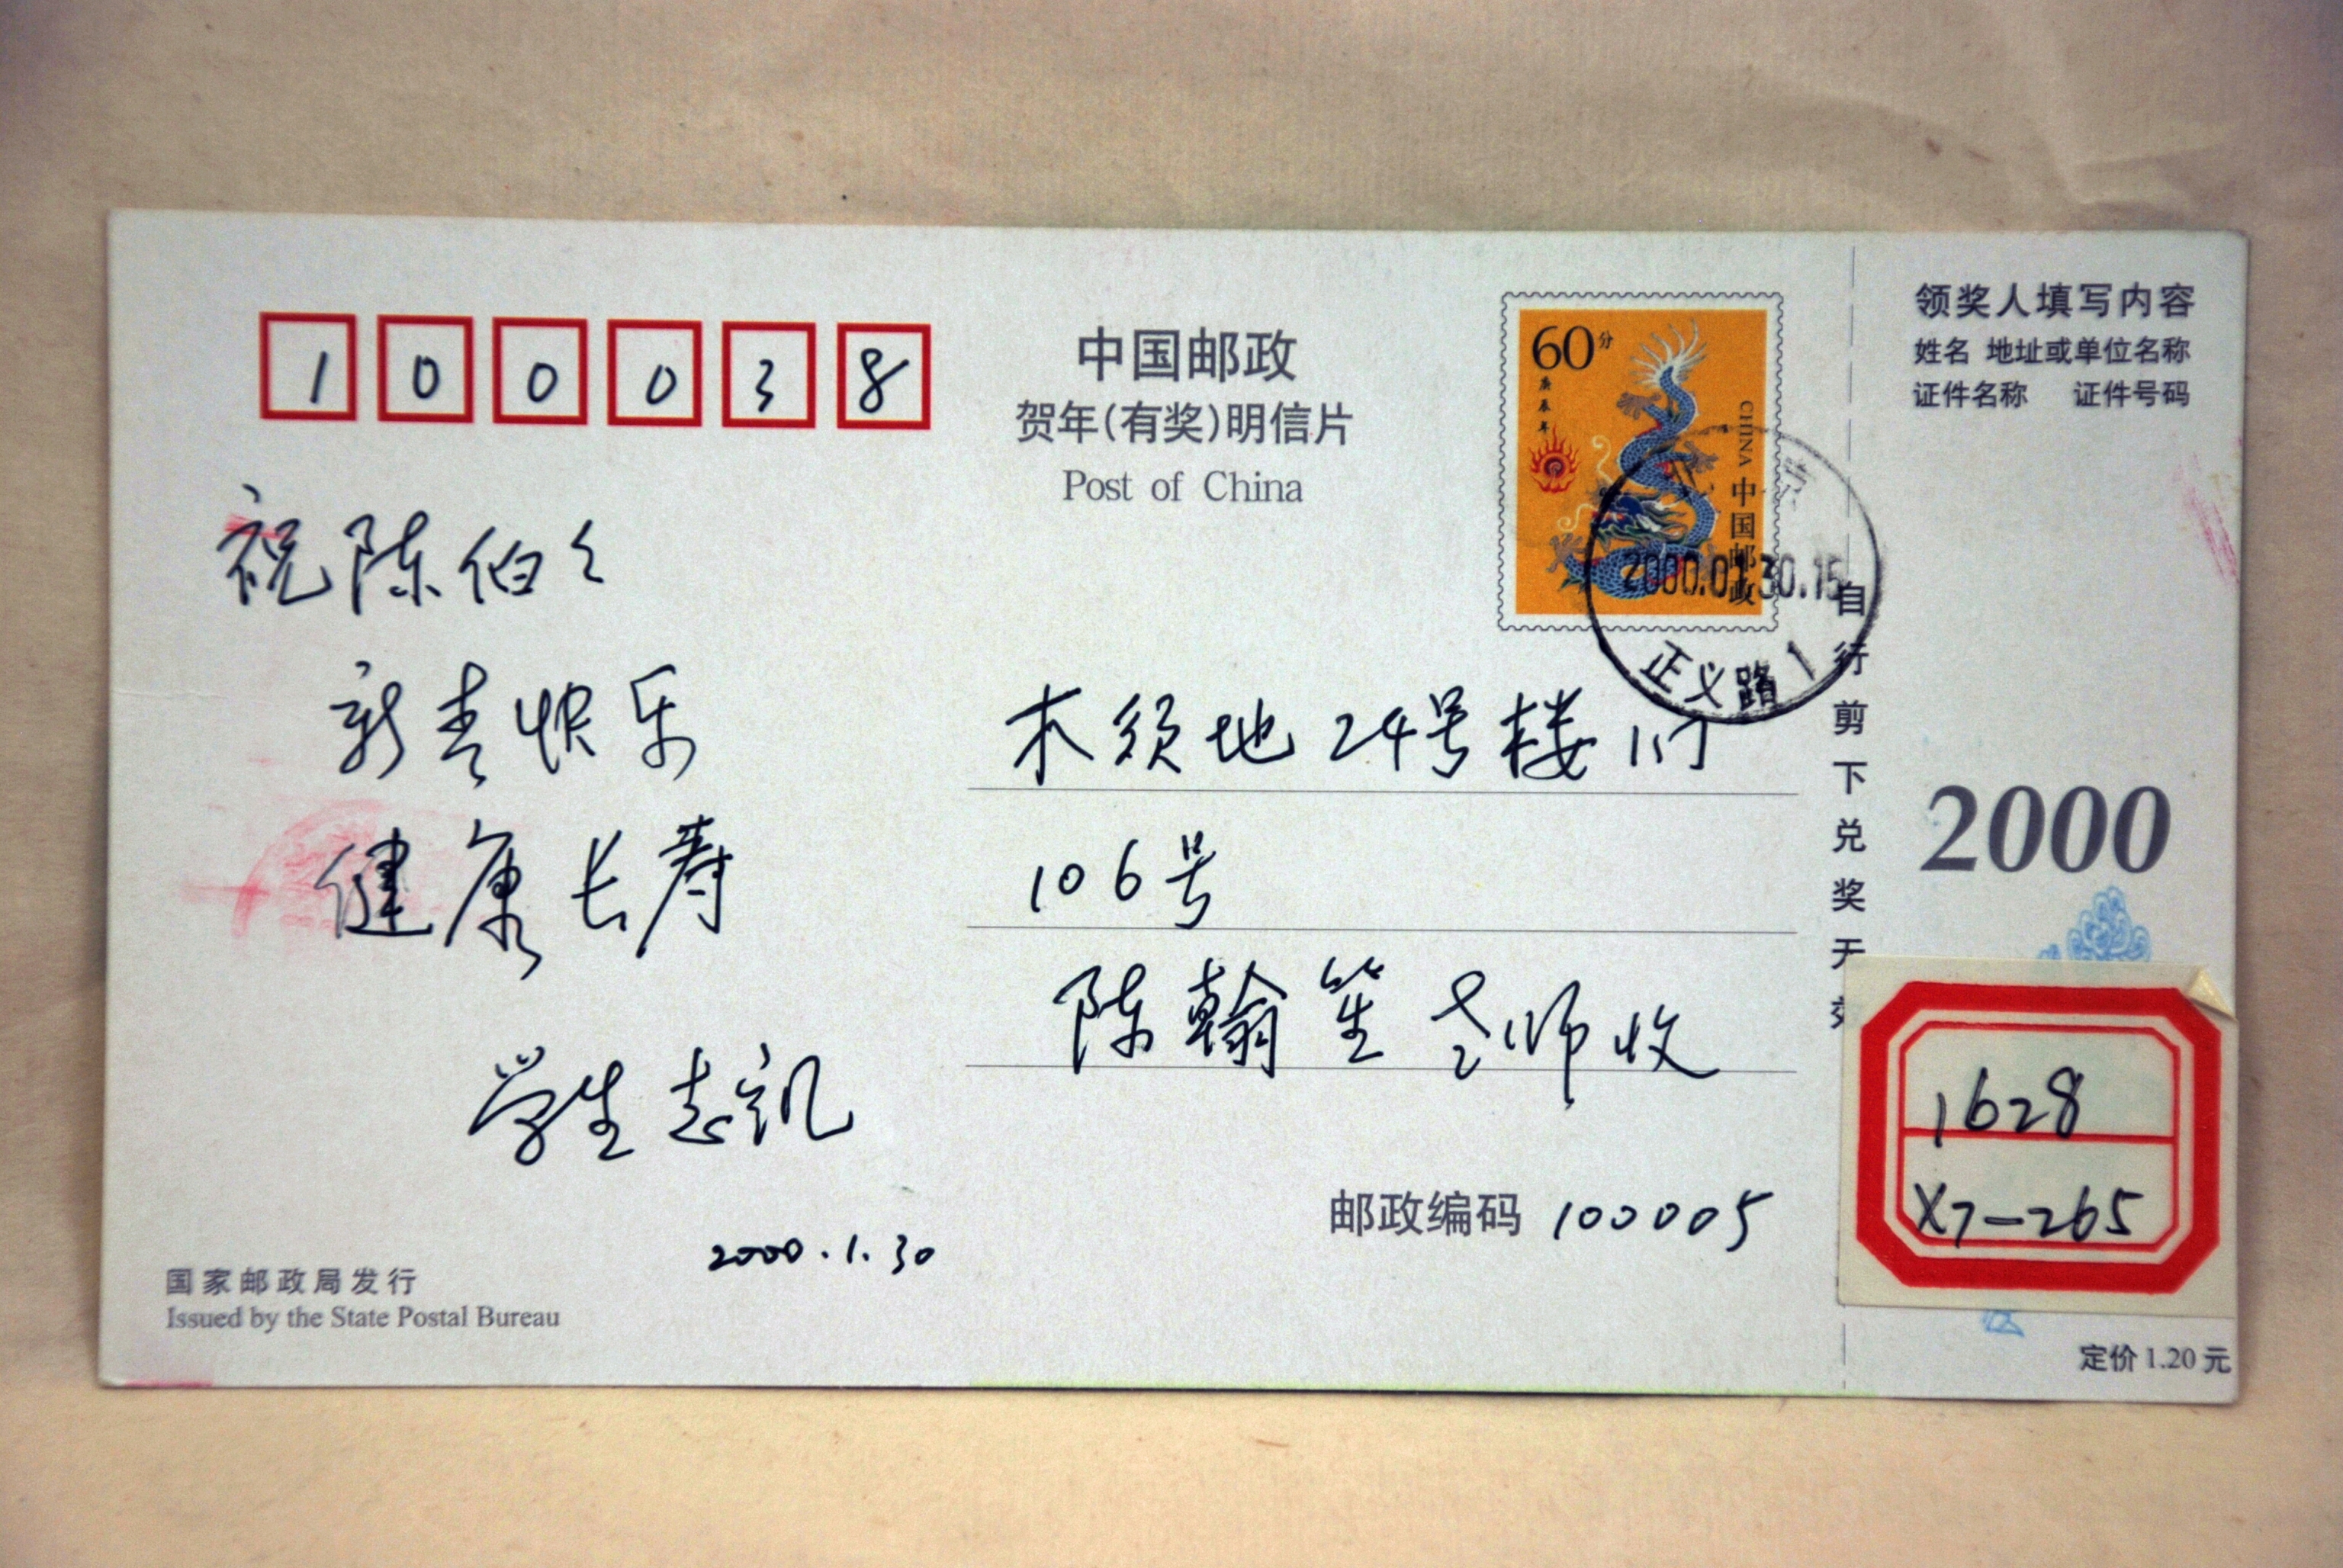 100038
中国邮政
贺年(有奖)明信片
Post of China
60分
庚辰年
CHINA
中国邮政
2000.01.30.15
正义路 1
领奖人填写内容
姓名 地址或单位名称
证件名称 证件号码
自行剪下兑奖无效
2000
祝陈伯々
新春快乐
健康长寿
学生志凯
2000.1.30
木须地24号楼1门
106号
陈翰笙老师收
邮政编码 100005
国家邮政局发行
Issued by the State Postal Bureau
1628
X7-265
定价 1.20 元